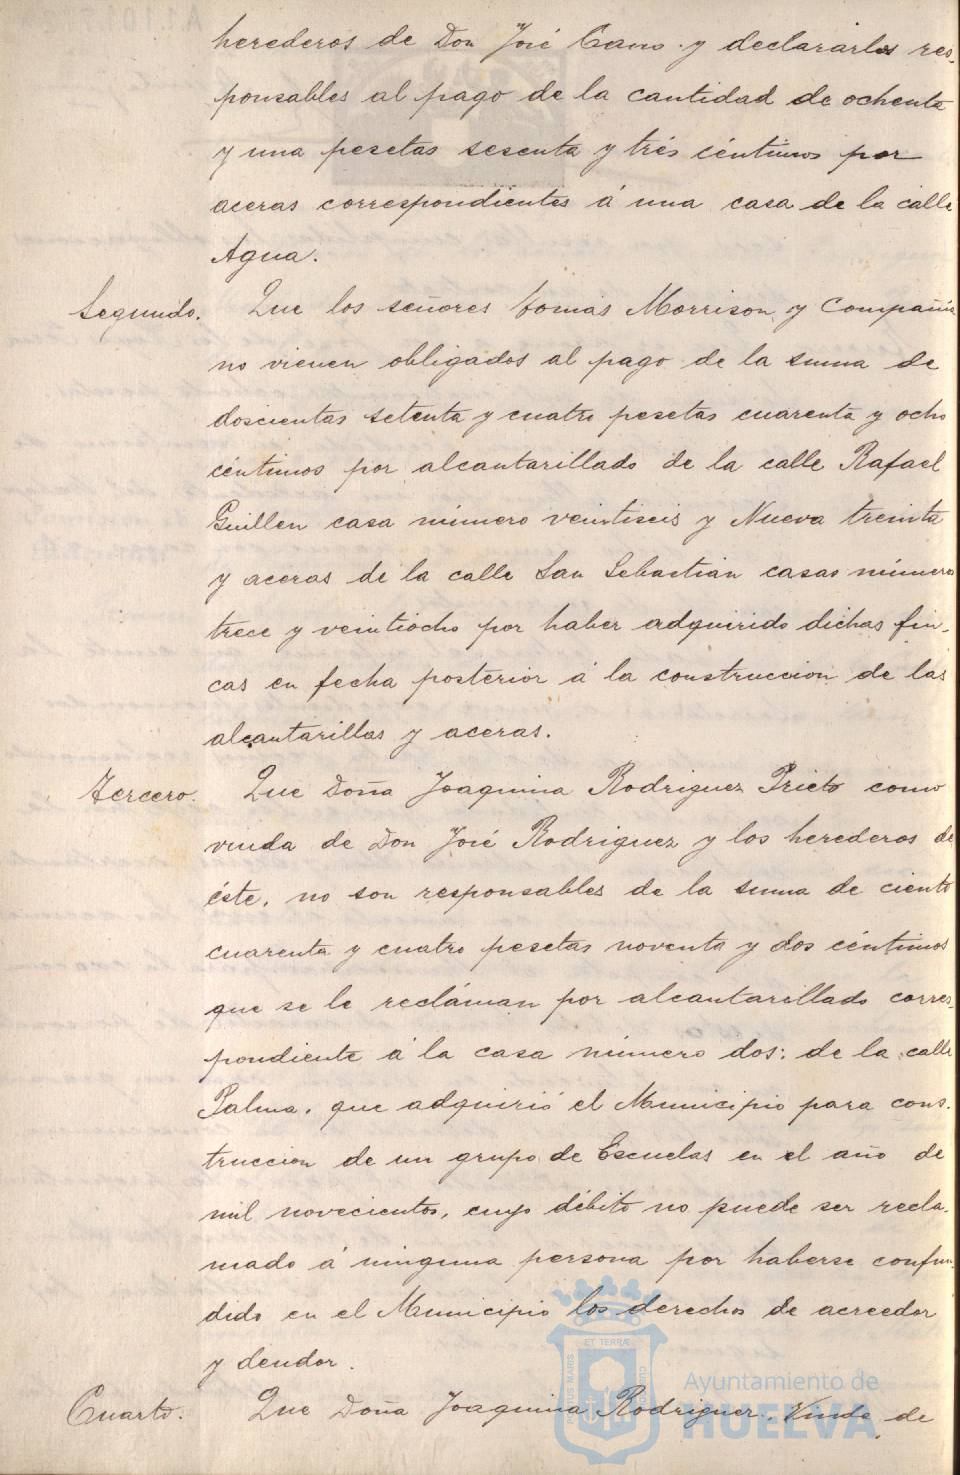 herederos de Don José Cano y declararlos res-
ponsables al pago de la cantidad de ochenta
y una pesetas sesenta y trés céntimos por
aceras correspondientes á una casa de la calle
Agua.
Segundo. Que los señores Tomás Morrison y Compañia
no vienen obligados al pago de la suma de
doscientas setenta y cuatro pesetas cuarenta y ocho
céntimos por alcantarillado de la calle Rafael
Guillen casa número veintiseis y Nueva treinta
y aceras de la calle San Sebastián casas número
trece y veintiocho por haber adquirido dichas fin-
cas en fecha posterior á la construccion de las
alcantarillas y aceras.
Tercero. Que Doña Joaquina Rodriguez Prieto como
viuda de Don José Rodriguez y los herederos de
éste, no son responsables de la suma de ciento
cuarenta y cuatro pesetas noventa y dos céntimos
que se le recláman por alcantarillado corres-
pondiente á la casa número dos: de la calle
Palma, que adquirió el Municipio para cons-
truccion de un grupo de Escuelas en el año de
mil novecientos, cuyo débito no puede ser recla-
mado á ninguna persona por haberse confun-
dido en el Municipio los derechos de acreedor
y deudor.
Cuarto. Que Doña Joaquina Rodriguez, Viuda de
PORTUS MARIS ET TERRÆ CUSTODIA
Ayuntamiento de
HUELVA